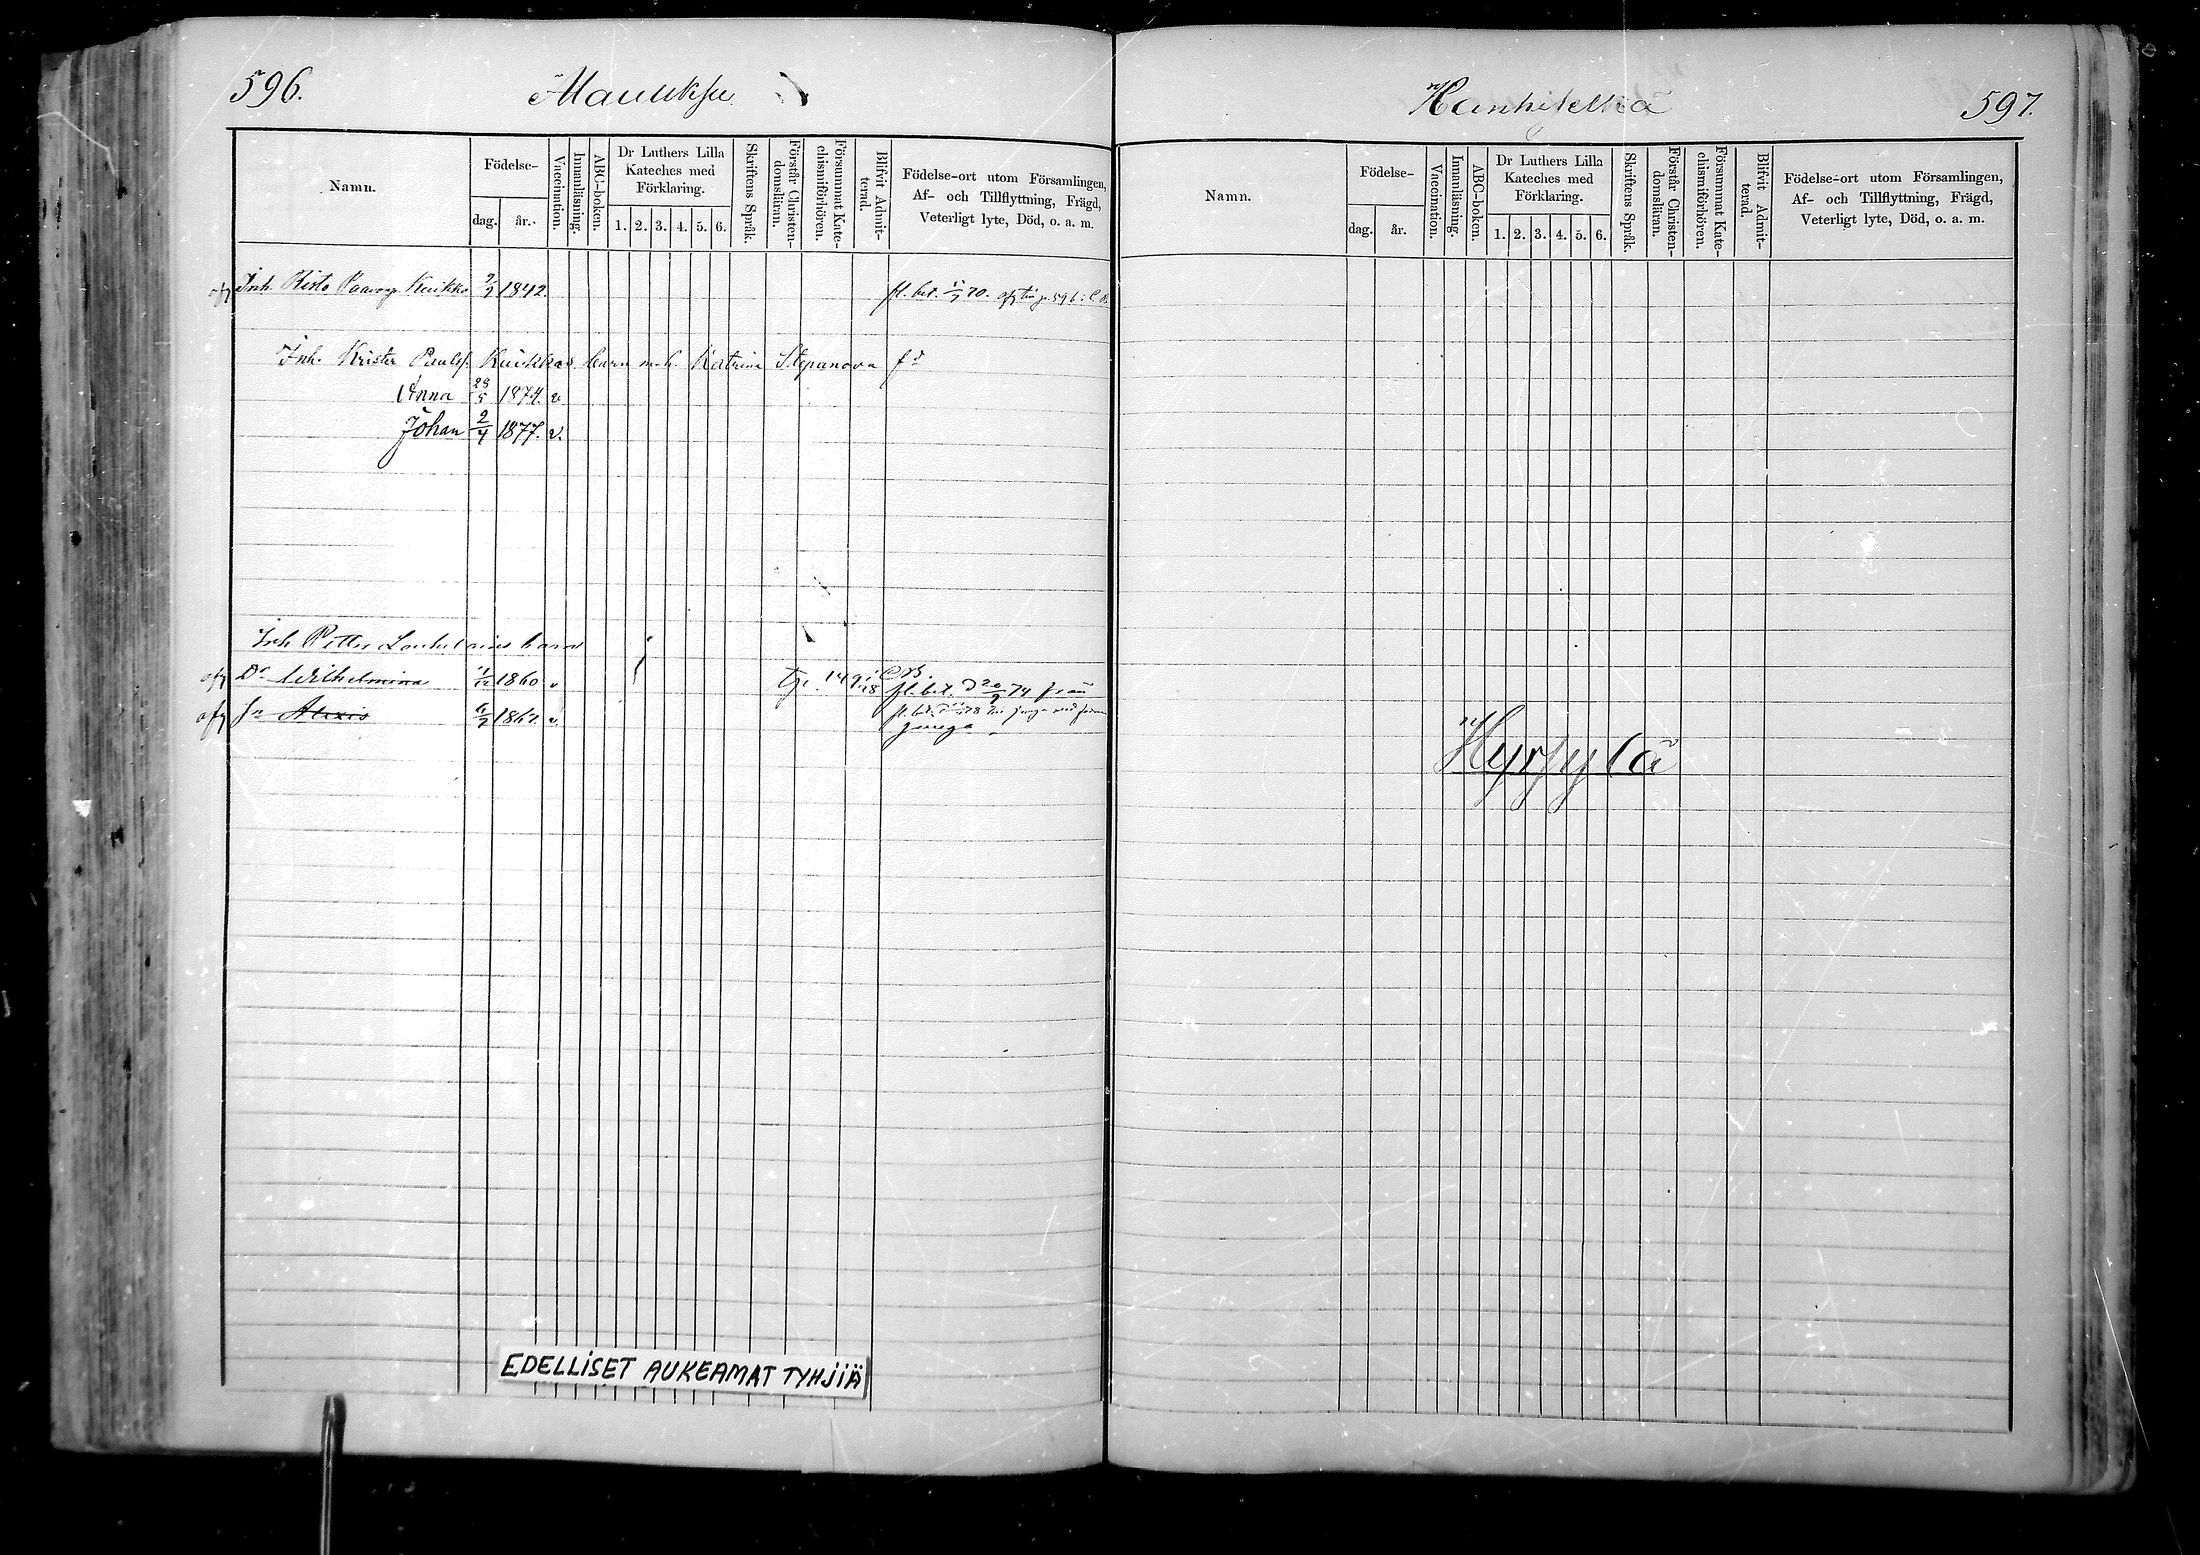 596.
Mauuksu
Namn.
Födelse-
dag.
år.
Vaccination.
Innanläsning.
ABC-boken.
Dr Luthers Lilla
Kateches med
Förklaring.
1. 2. 3. 4. 5. 6.
Skriftens Språk.
Förstår Christen-
domsläran.
Försummat Kate-
chismiförhören.
Blifvit Admit-
terad.
Födelse-ort utom Församlingen,
Af- och Tillflyttning, Frägd,
Veterligt lyte, Död, o. a. m.
afg Inh. Risto Paavop. Kuikka 2/9 1842.
Inh. Krister Paulsf. Kuikkas barn m. h. Katrina Stepanova fd
Anna 28/5 1874. v.
Johan 2/4 1877. v.
Inh Petter barn
afg Dr Wilhelmina 1/12 1860 v
afg Sn Alexis 1867. v.
EDELLISET AUKEAMAT TYHJIÄ
Hanhiselkä
597.
Namn.
Födelse-
dag.
år.
Vaccination.
Innanläsning.
ABC-boken.
Dr Luthers Lilla
Kateches med
Förklaring.
1. 2. 3. 4. 5. 6.
Skriftens Språk.
Förstår Christen-
domsläran.
Försummat Kate-
chismiförhören.
Blifvit Admit-
terad.
Födelse-ort utom Församlingen,
Af- och Tillflyttning, Frägd,
Veterligt lyte, Död, o. a. m.
Hyrsylä